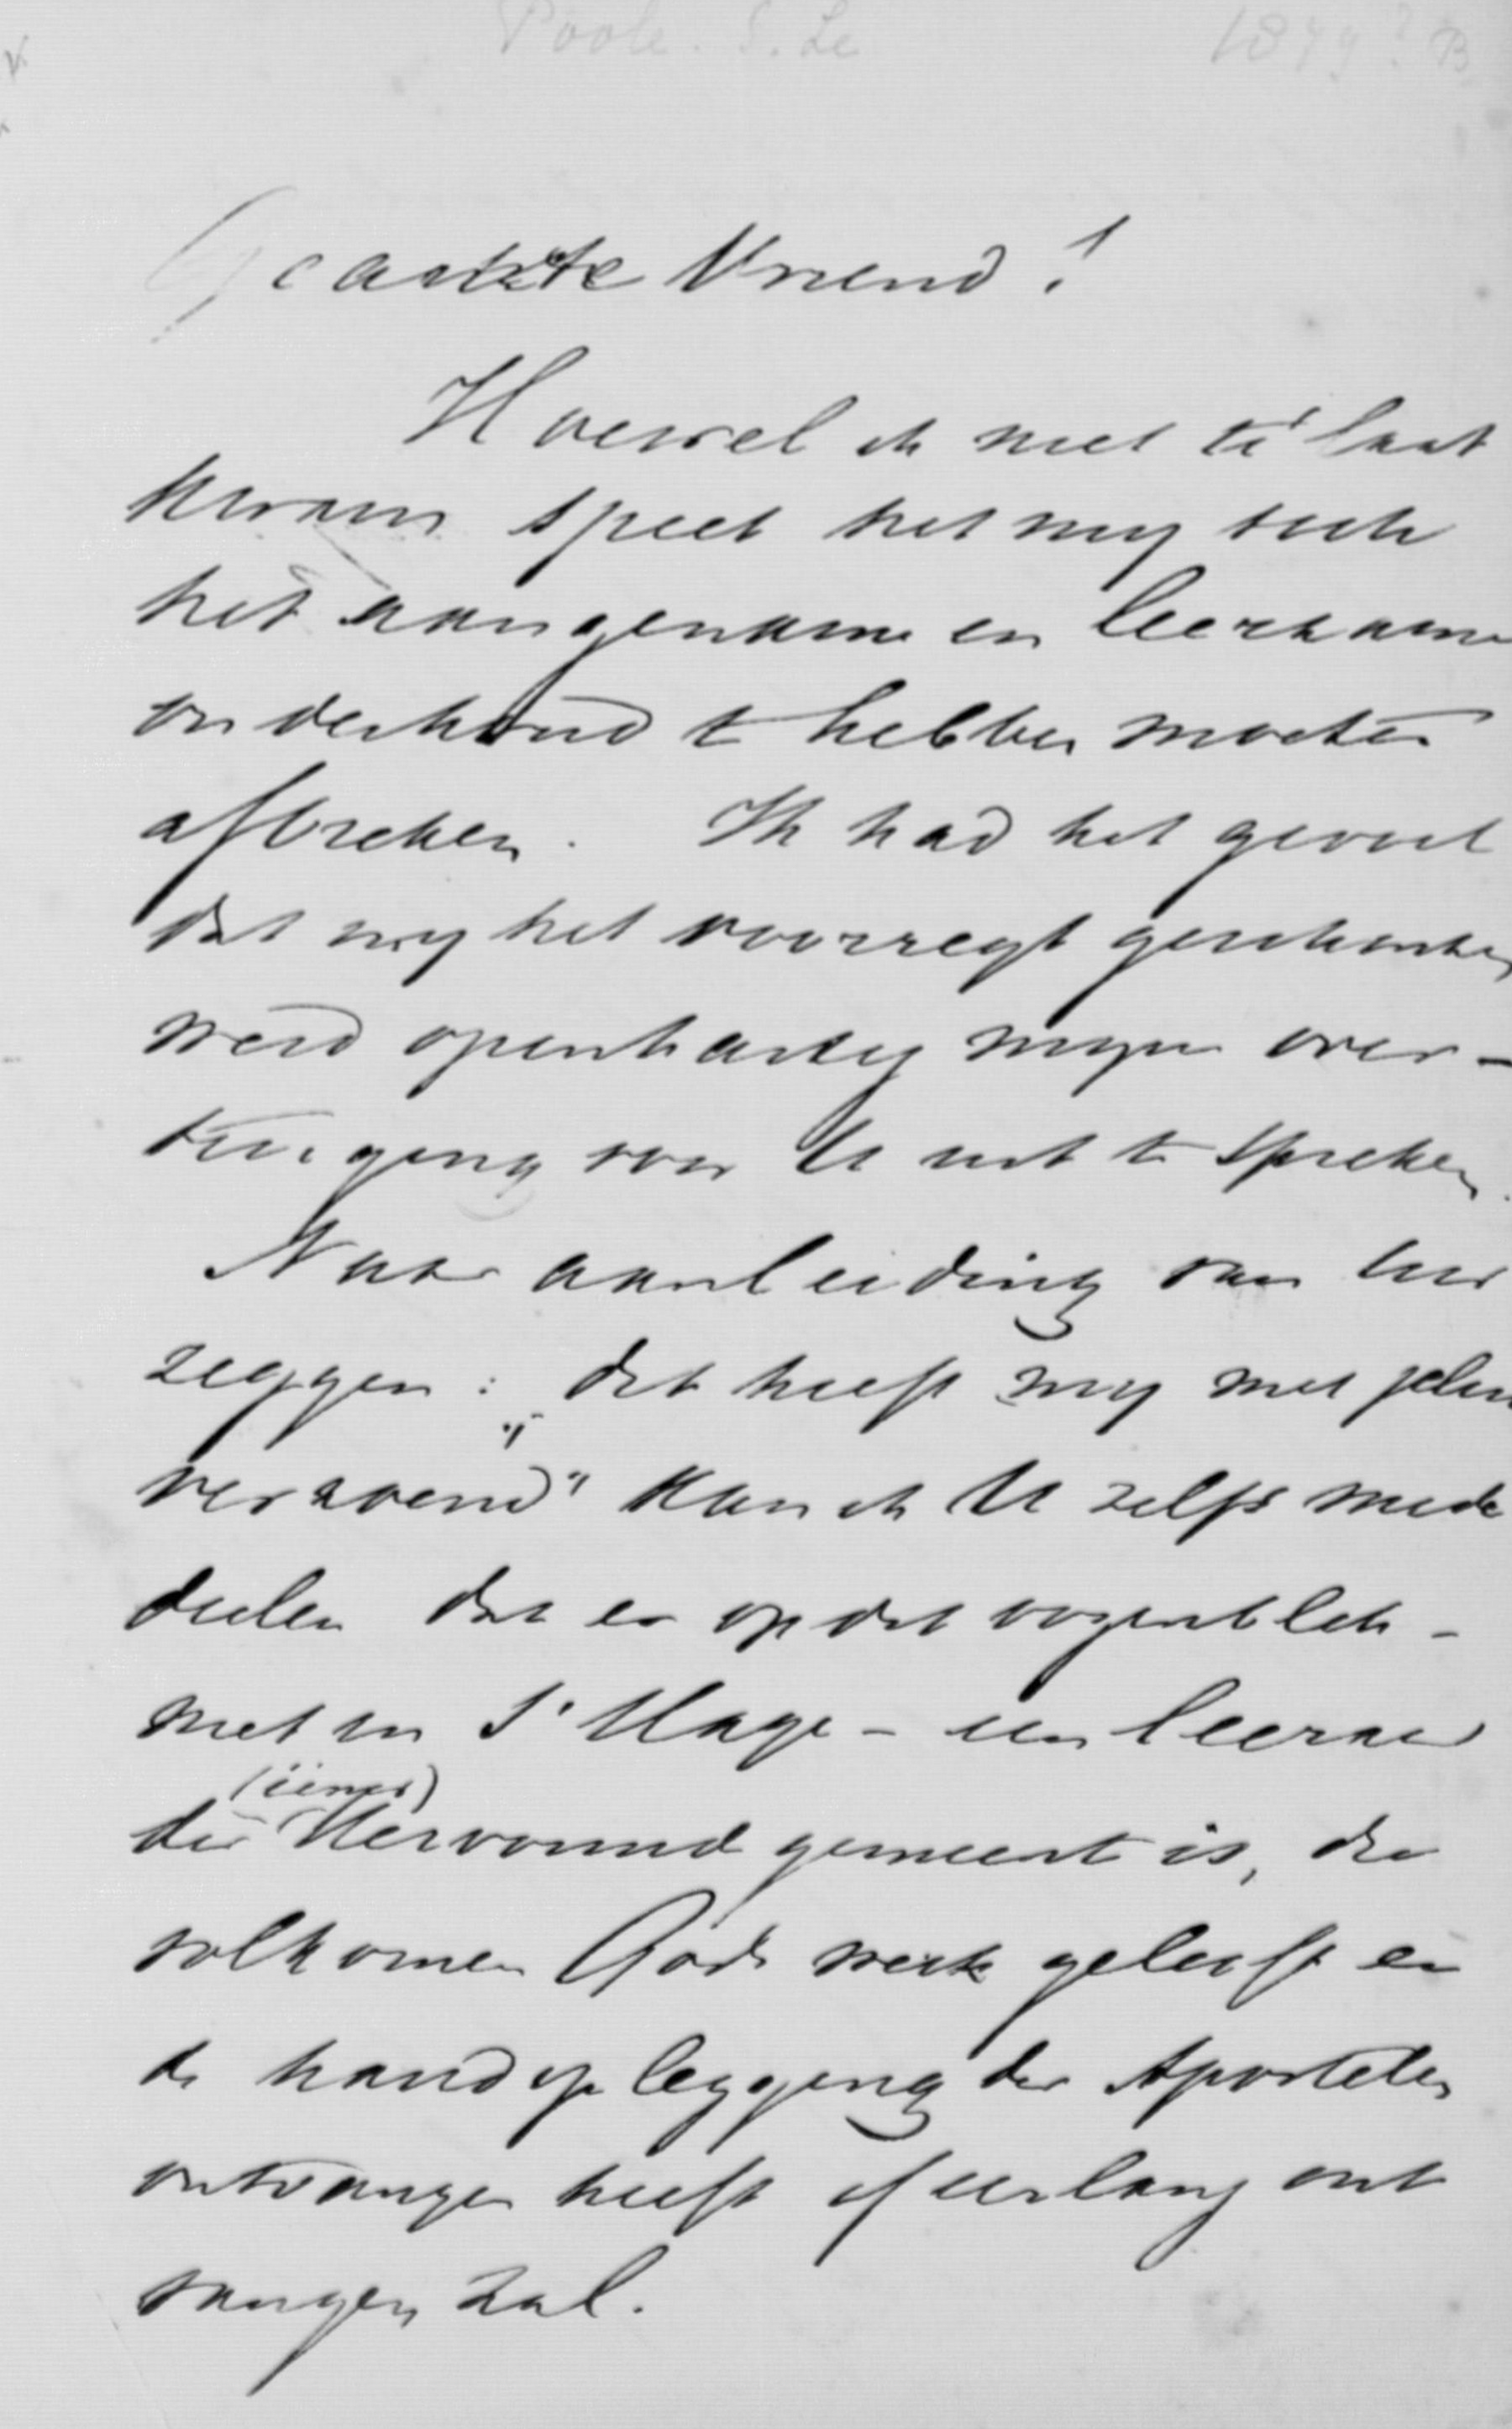 Poole. S. Le 1879? B
Geachte Vriend!
Hoewel ik niet te laat
kwam speet het my toch
het aangename en leerzame
onderhoud te hebben moeten
afbreken. Ik had het gevoel
dat my het voorregt geschonken
werd openhartig myne over-
tuiging voor U uit te spreken.
Naar aanleiding van het
zeggen: dat heeft my niet
"verzoend" kan ik U zelfs mede
deelen dat er op dit oogenblik -
niet in S'Hage - een leeraar
(eener)
der Hervormde gemeente is, die
volkomen Gods werk gelooft en
de handoplegging der Apostelen
ontvangen heeft of eerlang ont
vangen zal.